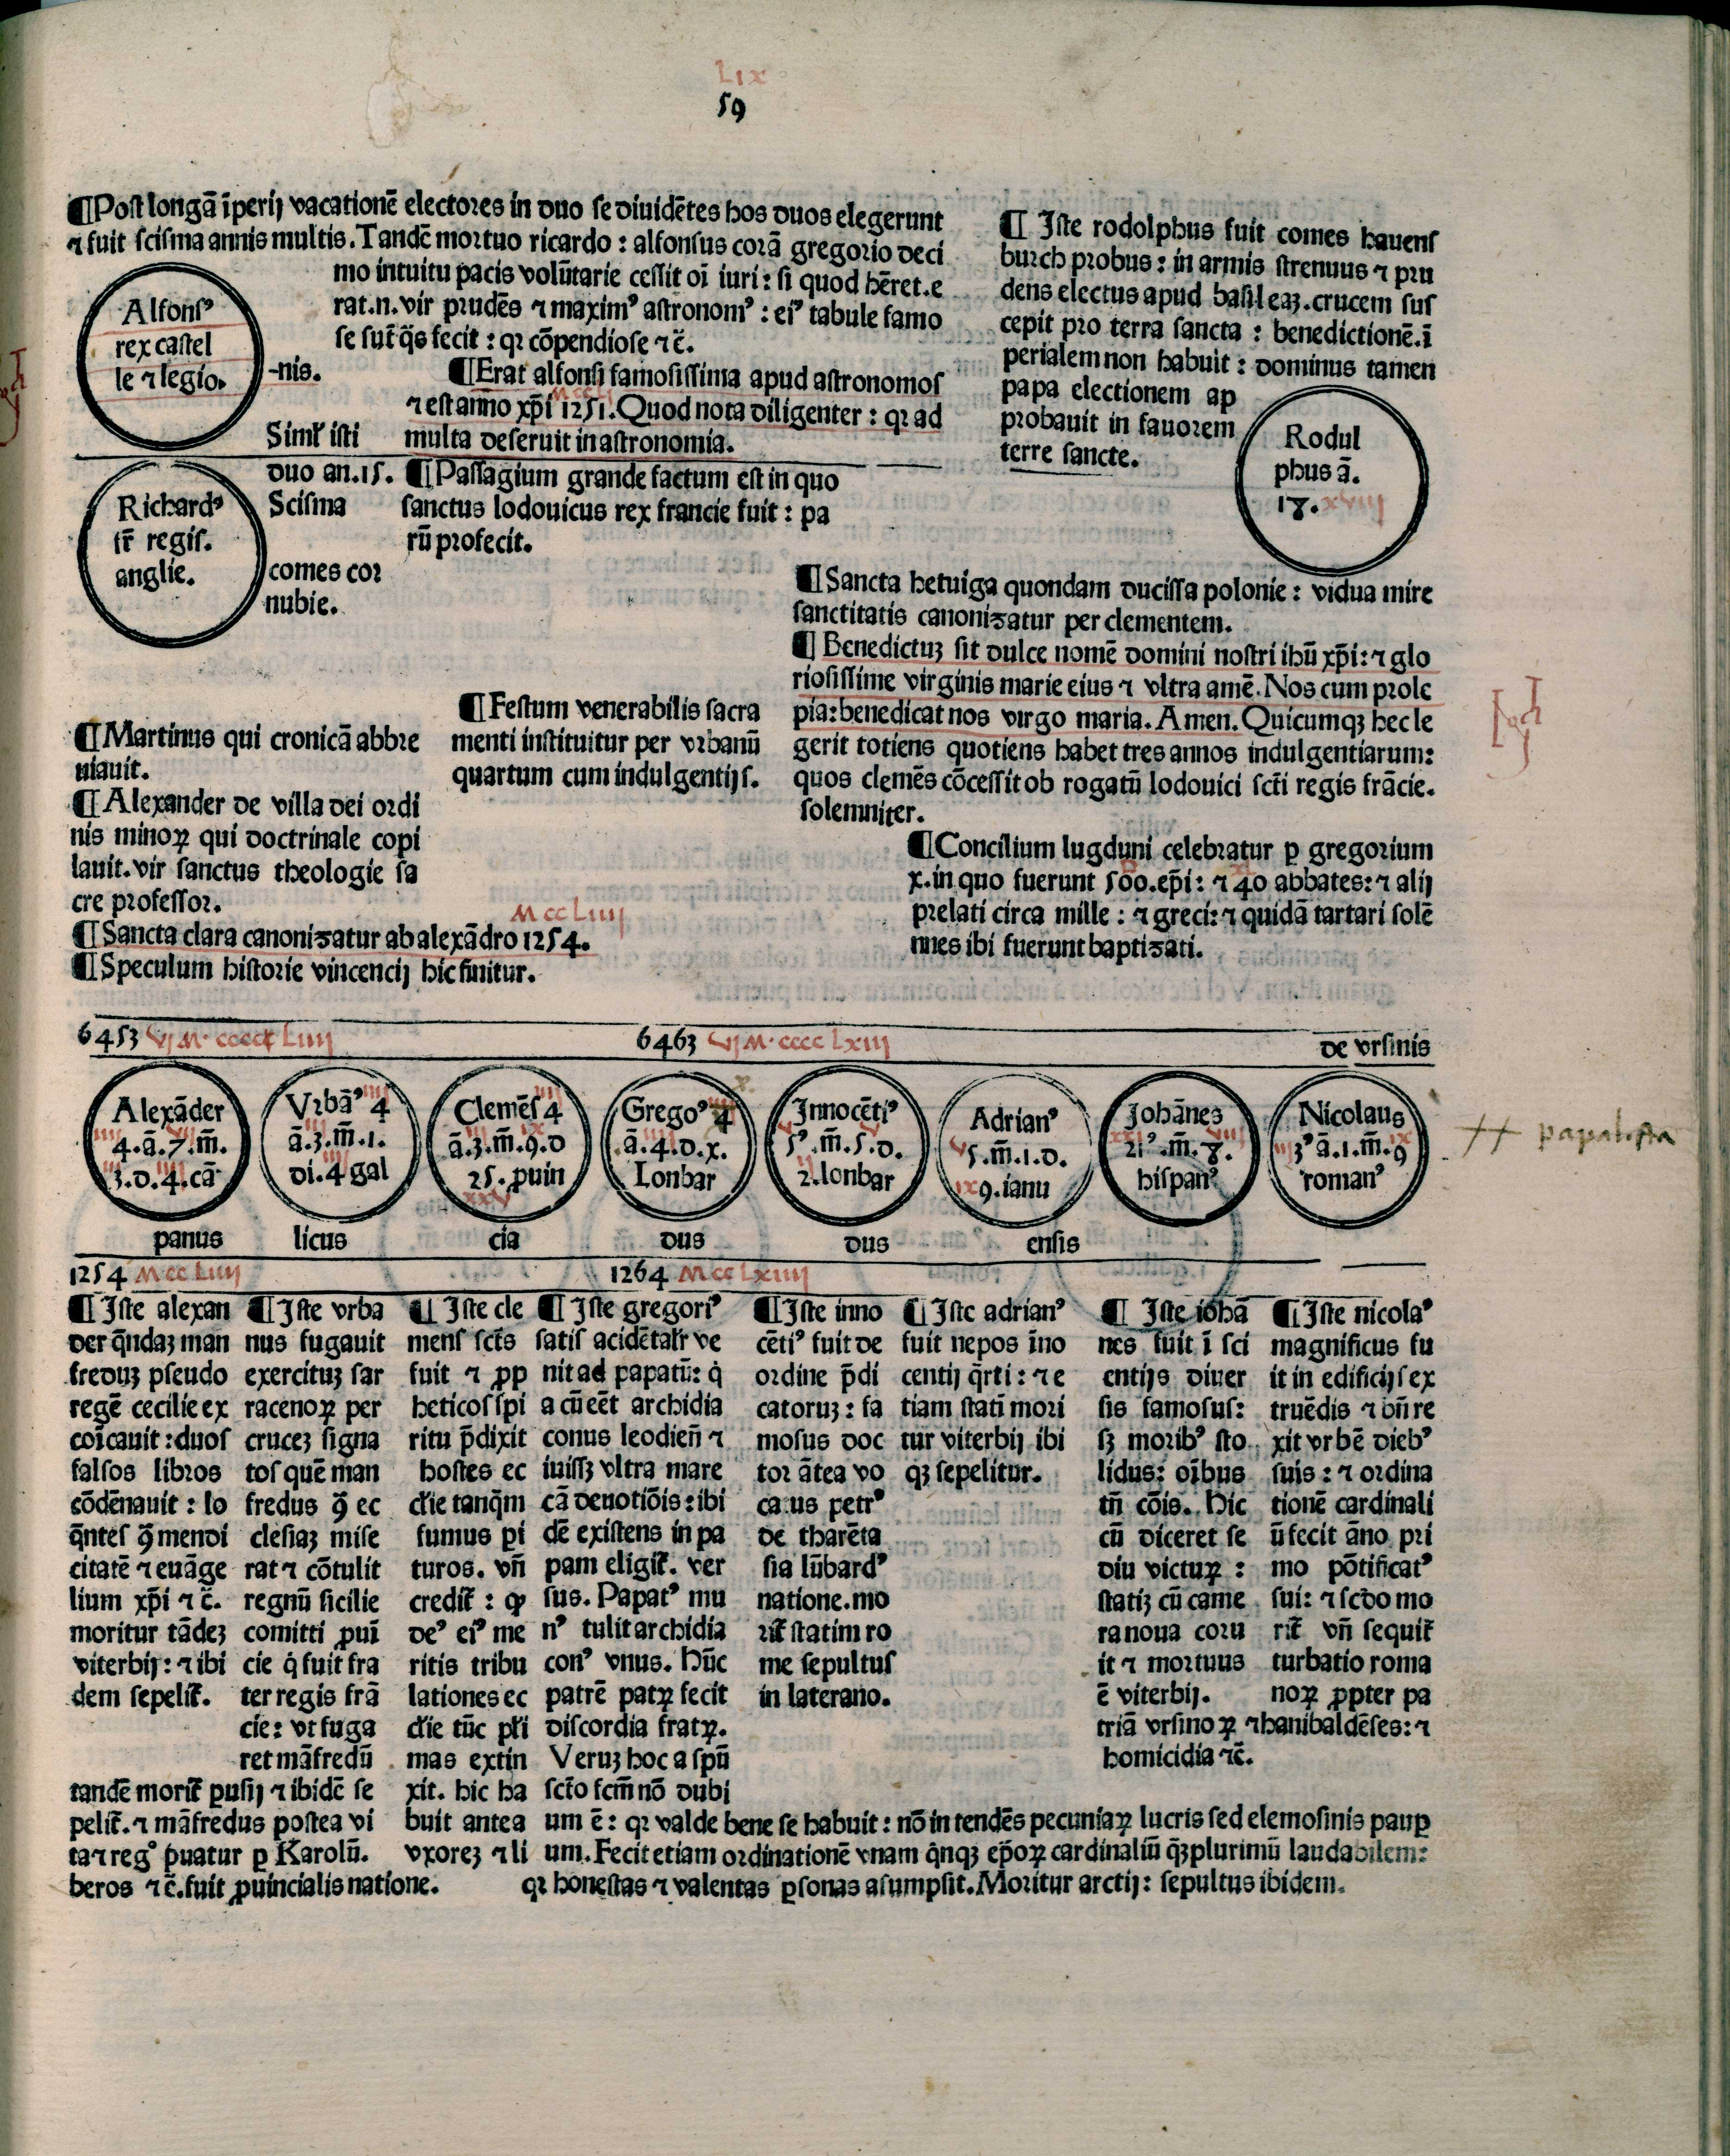 Lix
59
¶Post longã ĩperij vacationẽ electores in duo se diuidẽtes hos duos elegerunt
⁊ fuit scisma annis multis. Tandẽ mortuo ricardo : alfonsus corã gregorio deci
mo intuitu pacis volũtarie cessit oĩ iuri : si quod hẽret. e
rat .n. vir prudẽs ⁊ maximꝰ astronomꝰ : eiꝰ tabule famo
se sũt q̃s fecit : qꝛ cõpendiose ⁊c̃.
Alfonsꝰ
rex castel
le ⁊ legio.
-nis.
¶Erat alfonsi famosissima apud astronomos
⁊ est anno xp̃i 1251. Quod nota diligenter : qꝛ ad
multa deseruit in astronomia.
Simĺ isti
duo an. 15.
Scisma
Richardꝰ
fr̃ regis.
anglie.
comes coꝛ
nubie.
¶Passagium grande factum est in quo
sanctus lodouicus rex francie fuit : pa
rũ profecit.
¶ Iste rodolphus fuit comes hauens
burch probus : in armis strenuus ⁊ pru
dens electus apud basileaꝫ. crucem sus
cepit pro terra sancta : benedictionẽ. ĩ
perialem non habuit : dominus tamen
papa electionem ap
probauit in fauorem
terre sancte.
Rodul
phus ã.
18. xviij
¶Sancta hetuiga quondam ducissa polonie : vidua mire
sanctitatis canonizatur per clementem.
¶ Benedictuꝫ sit dulce nomẽ domini nostri ihũ xp̃i : ⁊ glo
riosissime virginis marie eius ⁊ vltra amẽ. Nos cum prole
pia : benedicat nos virgo maria. Amen. Quicumqꝫ hec le
gerit totiens quotiens habet tres annos indulgentiarum :
quos clemẽs cõcessit ob rogatũ lodouici sc̃ti regis frãcie.
solemniter.
¶Festum venerabilis sacra
menti instituitur per vrbanũ
quartum cum indulgentijs.
¶Martinus qui cronicã abbre
uiauit.
¶Alexander de villa dei ordi
nis minoꝝ qui doctrinale copi
lauit. vir sanctus theologie sa
cre professor.
Mccliiij
¶Sancta clara canonizatur ab alexãdro 1254.
¶Speculum historie vincencij hic finitur.
¶Concilium lugduni celebratur ꝑ gregorium
x. in quo fuerunt 500. ep̃i : ⁊ 40 abbates : ⁊ alij
prelati circa mille : ⁊ greci : ⁊ quidã tartari solẽ
nnes ibi fuerunt baptizati.
6453
6463
de vrsinis
Alexãder
4. ã. 7. m̃.
3. d. 4. cã
panus
Vrbãꝰ 4
ã. 3. m̃. 1.
di. 4 gal
licus
Clemẽs 4
ã. 3. m̃. 9. d
25. ꝓuin
cia
Gregoꝰ 4
ã. 4. d. x.
Lonbar
dus
Innocẽtiꝰ
5ꝰ. m̃. 5. d.
2. lonbar
dus
Adrianꝰ
5. m̃. 1. d.
9. ianu
ensis
Johãnes
21ꝰ. m̃. 8.
hispanꝰ
Nicolaus
3ꝰ ã. 1. m̃. 9
romanꝰ
1254 Mccliiij
1264 Mcclxiiij
¶Iste alexan
der q̃ndaꝫ man
freduꝫ pseudo
regẽ cecilie ex
coĩcauit : duos
falsos libros
cõdẽnauit : lo
q̃ntes ꝯ̃ mendi
citatẽ ⁊ euãge
lium xp̃i ⁊c̃.
moritur tãdeꝫ
viterbij : ⁊ ibi
dem sepelit̃.
¶Iste vrba
nus fugauit
exercituꝫ sar
racenoꝝ per
cruceꝫ signa
tos quẽ man
fredus ꝯ̃ ec
clesiaꝫ mise
rat ⁊ cõtulit
regnũ sicilie
comitti ꝓuĩ
cie q̇ fuit fra
ter regis frã
cie : vt fuga
ret mãfredũ
tandẽ morit̃ ꝑusij ⁊ ibidẽ se
pelit̃. ⁊ mãfredus postea vi
ta ⁊ regꝰ p̃uatur ꝑ Karolũ.
¶ Iste cle
mens sc̃ts
fuit ⁊ ꝓp
heticos spi
ritu p̃dixit
hostes ec
cĺie tanq̃m
fumus ꝑi
turos. vñ
credit̃ : ꝙ
deꝰ eiꝰ me
ritis tribu
lationes ec
cĺie tũc pĺi
mas extin
xit. hic ha
buit antea
vxoreꝫ ⁊ li
beros ⁊c̃. fuit ꝓuincialis natione.
¶ Iste gregoriꝰ
satis acidẽtaĺr ve
nit ad papatũ : q̇
a cũ eẽt archidia
conus leodieñ ⁊
iuissꝫ vltra mare
cã deuotiõis : ibi
dẽ existens in pa
pam eligit̃. ver
sus. Papatꝰ mu
nꝰ tulit archidia
conꝰ vnus. Hũc
patrẽ patꝝ fecit
discordia fratꝝ.
Veruꝫ hoc a spũ
sc̃to scm̃ nõ dubi
um ẽ : qꝛ valde bene se habuit : nõ in tendẽs pecuniaꝝ lucris sed elemosinis pauꝑ
um. Fecit etiam ordinationẽ vnam q̇nqꝫ ep̃oꝝ cardinaliũ q̃ꝫplurimũ laudabilem :
qꝛ honestas ⁊ valentas ꝑsonas asumpsit. Moritur arctij : sepultus ibidem.
¶Iste inno
cẽtiꝰ fuit de
ordine p̃di
catoruꝫ : fa
mosus doc
tor ãtea vo
catus petrꝰ
de tharẽta
sia lũbardꝰ
natione. mo
rit̃ statim ro
me sepultus
in laterano.
¶ Iste adrianꝰ
fuit nepos ĩno
centij q̃rti : ⁊ e
tiam statĩ mori
tur viterbij ibi
qꝫ sepelitur.
¶ Iste iohã
nes fuit ĩ sci
entijs diuer
sis famosus :
sꝫ moribꝰ sto
lidus : oĩbus
tñ cõis. Hic
cũ diceret se
diu victuꝝ :
statiꝫ cũ came
ra noua coru
it ⁊ mortuus
ẽ viterbij.
¶Iste nicolaꝰ
magnificus fu
it in edificijs ex
truẽdis ⁊ bñ re
xit vrbẽ diebꝰ
suis : ⁊ ordina
tionẽ cardinali
ũ fecit ãno pri
mo põtificatꝰ
sui : ⁊ scd̃o mo
rit̃ vñ sequit̃
turbatio roma
noꝝ ꝓpter pa
triã vrsinoꝝ ⁊ hanibaldẽses : ⁊
homicidia ⁊c̃.